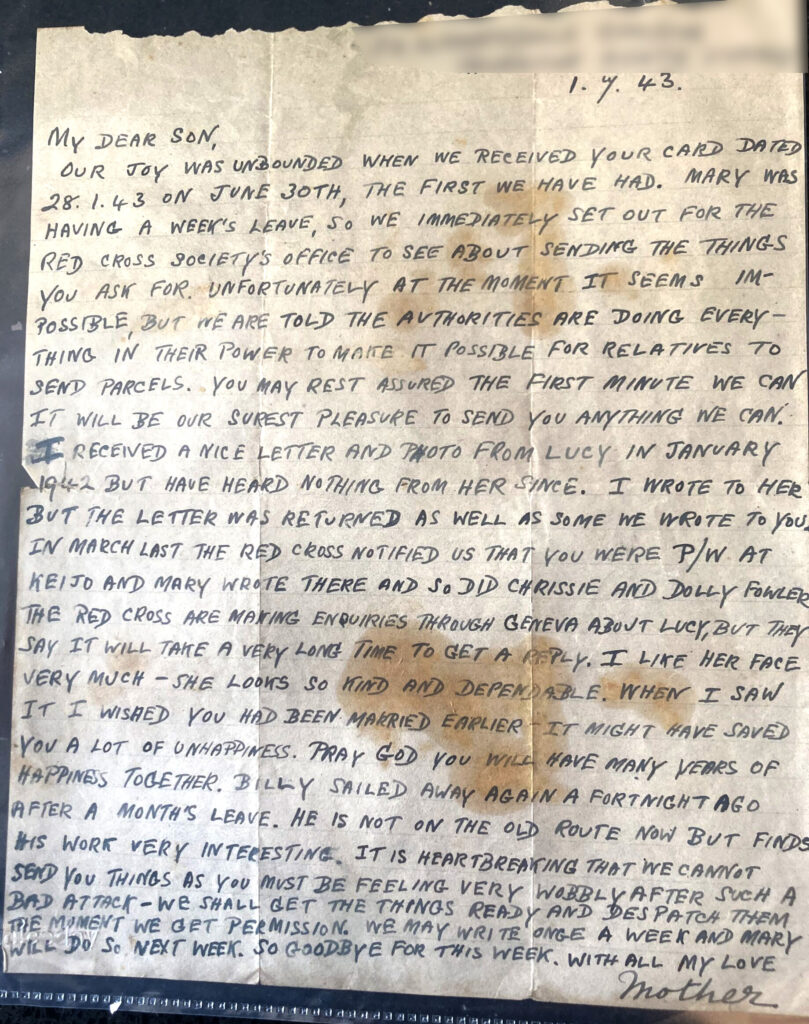 1. 7. 43.
MY DEAR SON,
OUR JOY WAS UNBOUNDED WHEN WE RECEIVED YOUR CARD DATED
28.1.43 ON JUNE 30TH, THE FIRST WE HAVE HAD. MARY WAS
HAVING A WEEK'S LEAVE, SO WE IMMEDIATELY SET OUT FOR THE
RED CROSS SOCIETY'S OFFICE TO SEE ABOUT SENDING THE THINGS
YOU ASK FOR. UNFORTUNATELY AT THE MOMENT IT SEEMS IM-
POSSIBLE, BUT WE ARE TOLD THE AUTHORITIES ARE DOING EVERY-
THING IN THEIR POWER TO MAKE IT POSSIBLE FOR RELATIVES TO
SEND PARCELS. YOU MAY REST ASSURED THE FIRST MINUTE WE CAN
IT WILL BE OUR SUREST PLEASURE TO SEND YOU ANYTHING WE CAN.
I RECEIVED A NICE LETTER AND PHOTO FROM LUCY IN JANUARY
1942 BUT HAVE HEARD NOTHING FROM HER SINCE. I WROTE TO HER
BUT THE LETTER WAS RETURNED AS WELL AS SOME WE WROTE TO YOU.
IN MARCH LAST THE RED CROSS NOTIFIED US THAT YOU WERE P/W AT
KEIJO AND MARY WROTE THERE AND SO DID CHRISSIE AND DOLLY FOWLER
THE RED CROSS ARE MAKING ENQUIRIES THROUGH GENEVA ABOUT LUCY, BUT THEY
SAY IT WILL TAKE A VERY LONG TIME TO GET A REPLY. I LIKE HER FACE
VERY MUCH - SHE LOOKS SO KIND AND DEPENDABLE. WHEN I SAW
IT I WISHED YOU HAD BEEN MARRIED EARLIER - IT MIGHT HAVE SAVED
YOU A LOT OF UNHAPPINESS. PRAY GOD YOU WILL HAVE MANY YEARS OF
HAPPINESS TOGETHER. BILLY SAILED AWAY AGAIN A FORTNIGHT AGO
AFTER A MONTH'S LEAVE. HE IS NOT ON THE OLD ROUTE NOW BUT FINDS
HIS WORK VERY INTERESTING. IT IS HEARTBREAKING THAT WE CANNOT
SEND YOU THINGS AS YOU MUST BE FEELING VERY WOBBLY AFTER SUCH A
BAD ATTACK - WE SHALL GET THE THINGS READY AND DESPATCH THEM
THE MOMENT WE GET PERMISSION. WE MAY WRITE ONCE A WEEK AND MARY
WILL DO SO NEXT WEEK. SO GOODBYE FOR THIS WEEK. WITH ALL MY LOVE
Mother